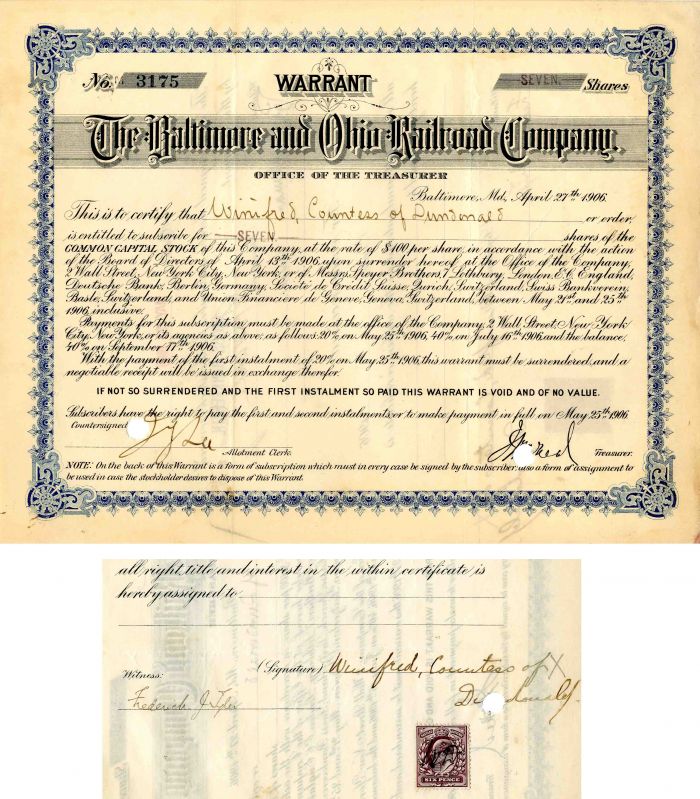 No. 3175
WARRANT
SEVEN. Shares
The Baltimore and Ohio Railroad Company.
OFFICE OF THE TREASURER
Baltimore, Md., April 27th 1906.
This is to certify that Winifred, Countess of Dundonald or order,
is entitled to subscribe for SEVEN shares of the
COMMON CAPITAL STOCK of this Company, at the rate of $100 per share, in accordance with the action
of the Board of Directors of April 13th 1906, upon surrender hereof, at the Office of the Company,
2 Wall Street, New York City, New York, or of Messrs. Speyer Brothers, 7 Lothbury, London, E.C. England,
Deutsche Bank, Berlin, Germany, Societe de Credit Suisse, Zurich, Switzerland, Swiss Bankverein,
Basle, Switzerland, and Union Financiere de Geneve, Geneva, Switzerland, between May 21st and 25th
1906, inclusive.
Payments for this subscription must be made at the office of the Company, 2 Wall Street, New York
City, New York, or its agencies as above, as follows: 20% on May 25th 1906, 40% on July 16th 1906, and the balance,
40% on September 17th 1906.
With the payment of the first instalment of 20% on May 25th 1906, this warrant must be surrendered, and a
negotiable receipt will be issued in exchange therefor.
IF NOT SO SURRENDERED AND THE FIRST INSTALMENT SO PAID THIS WARRANT IS VOID AND OF NO VALUE.
Subscribers have the right to pay the first and second instalments, or to make payment in full on May 25th 1906.
Countersigned
Lee
Allotment Clerk.
Treasurer.
NOTE: On the back of this Warrant is a form of subscription which must in every case be signed by the subscriber, also a form of assignment to
be used in case the stockholder desires to dispose of this Warrant.
all right, title, and interest in the within certificate is
hereby assigned to
Witness:
(Signature) Winifred, Countess of
Dundonald.
Frederick J. Tyler
SIX PENCE